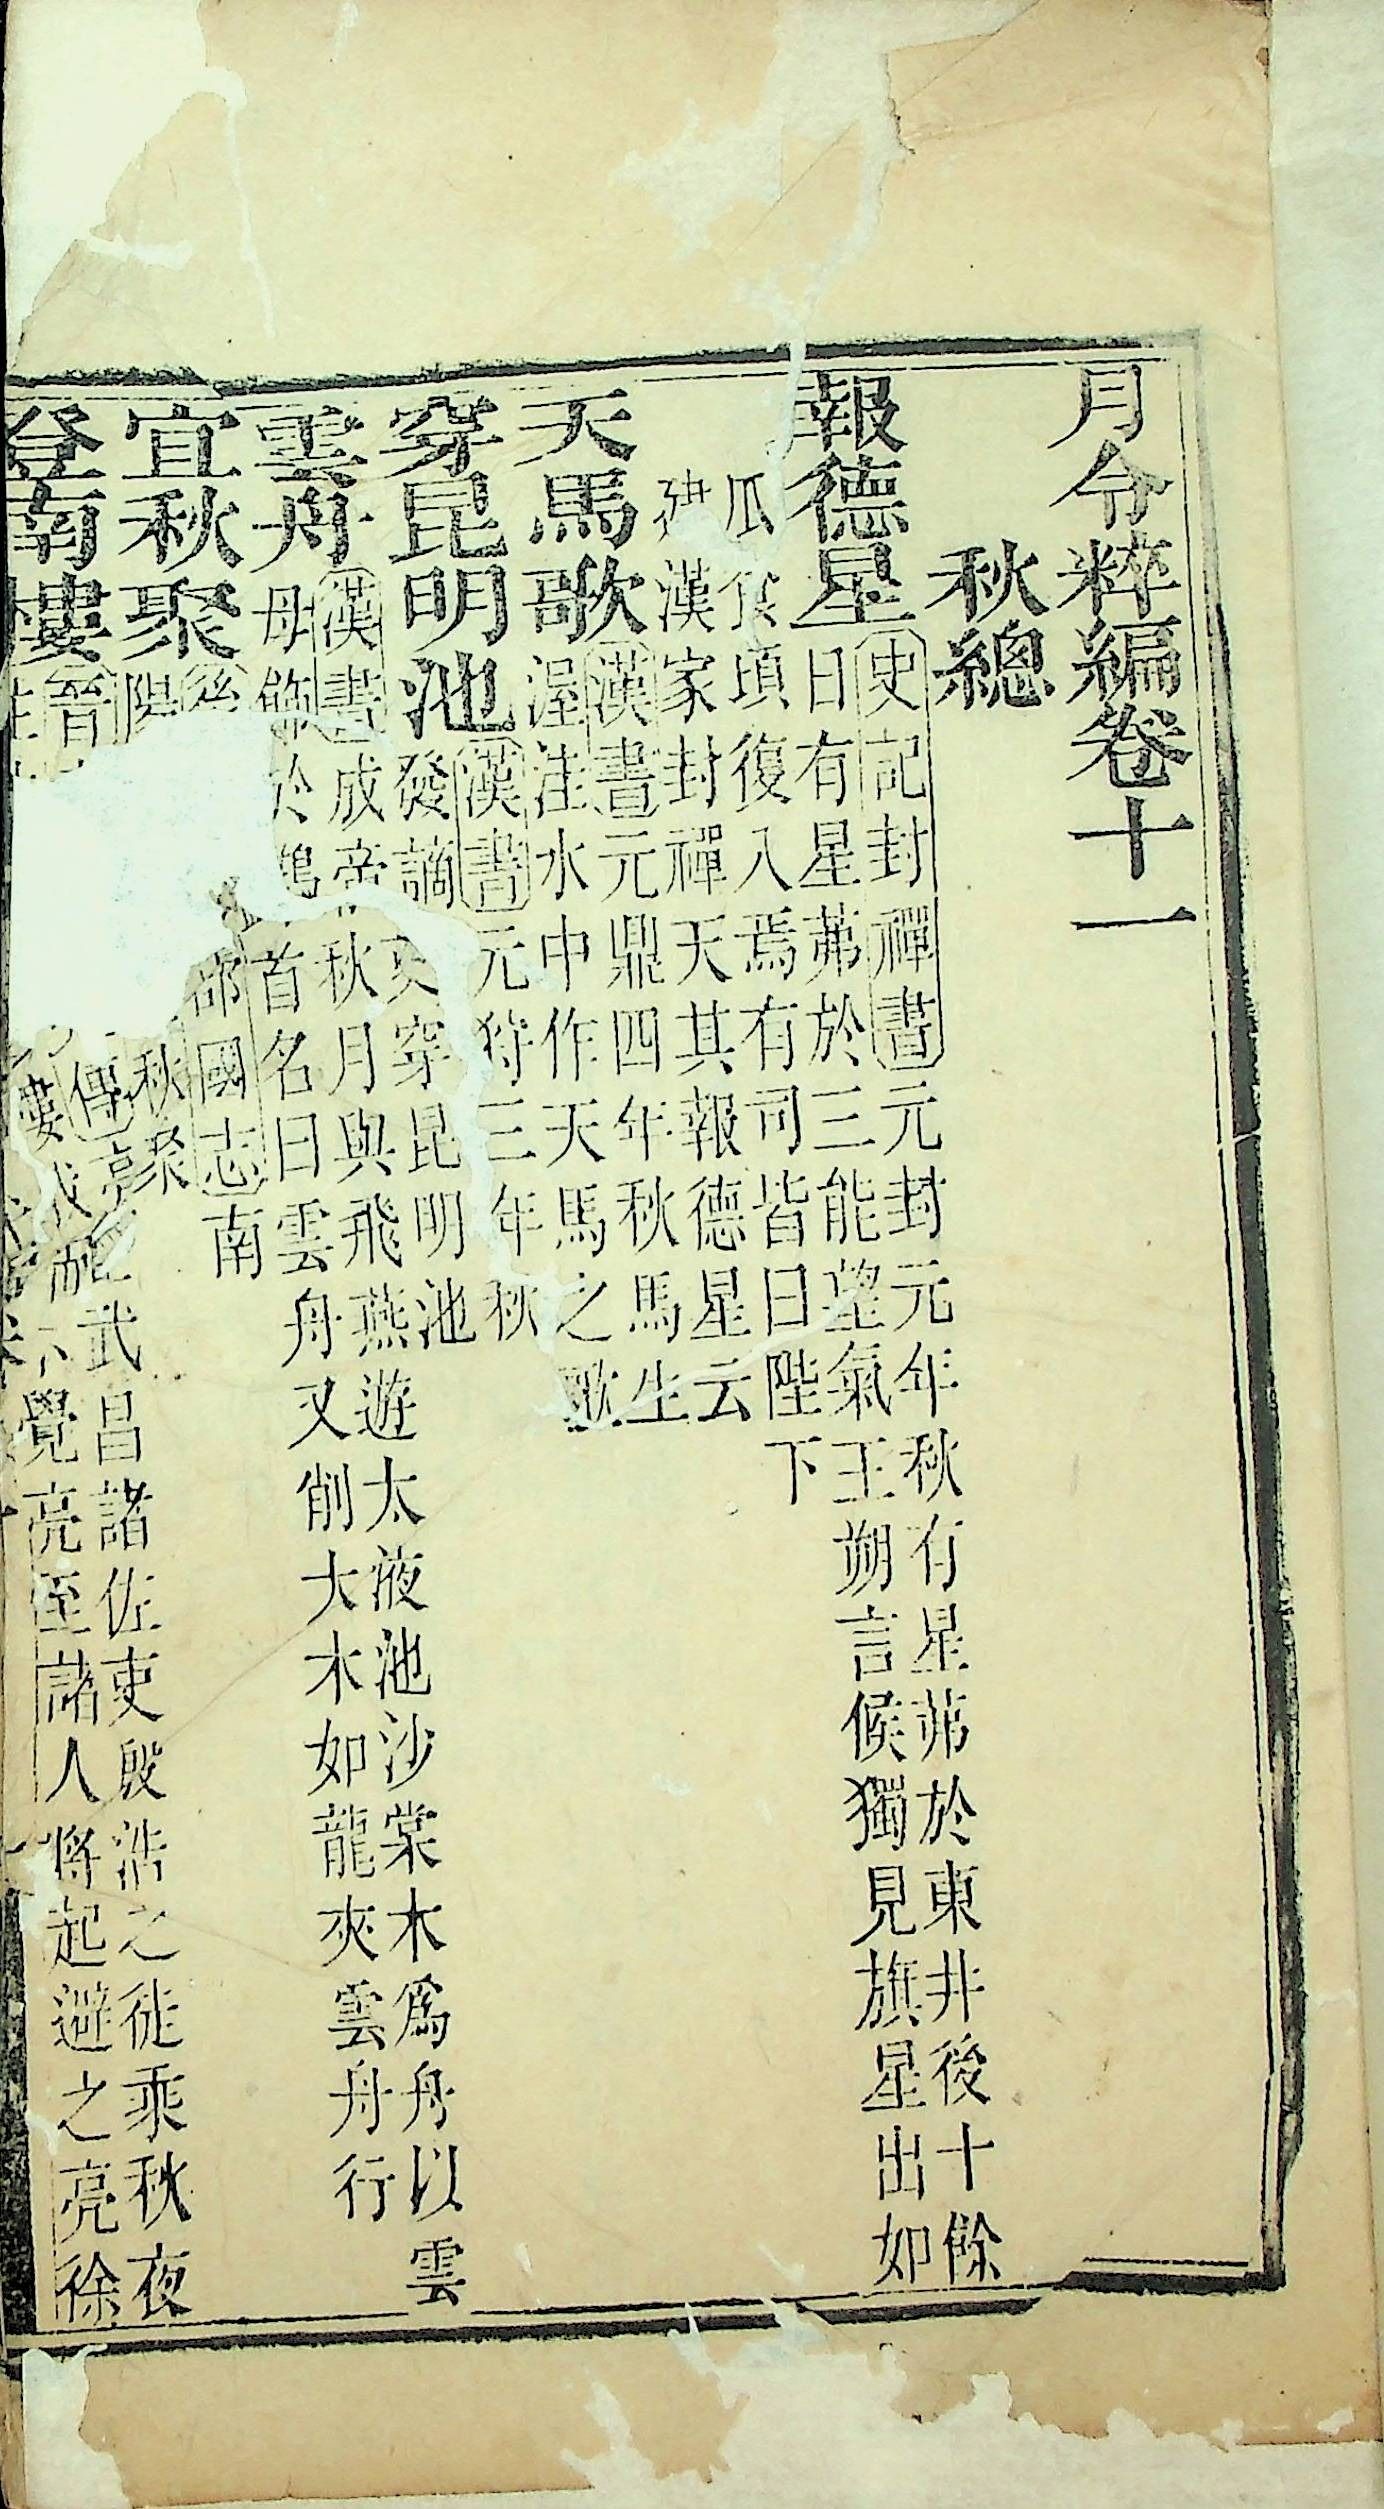 月令粹編卷十一
秋總
報德星
史記封禪書元封元年秋有星茀於東井後十餘
日有星茀於三能望氣王朔言候獨見旗星出如
瓜食頃復入焉有司皆曰陛下
建漢家封禪天其報德星云
天馬歌
漢書元鼎四年秋馬生
渥洼水中作天馬之歌
穿昆明池
漢書元狩三年秋
發謫 穿昆明池
雲舟
漢書成帝秋月與飛燕遊太液池沙棠木爲舟以雲
母飾於鷁首名曰雲舟又削大木如龍夾雲舟行
宜秋聚
後 郡國志南
陽 秋聚
登南樓
晉 傳亮 武昌諸佐吏殷浩之徒乘秋夜
往 樓 不覺亮至諸人將起避之亮徐